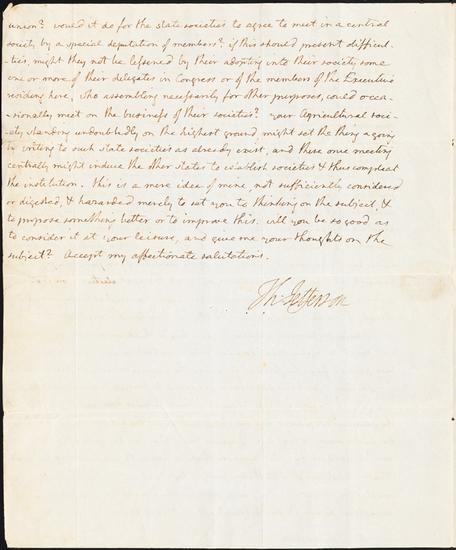 union? would it do for the state societies to agree to meet in a central
society by a special deputation of members? if this should present difficul-
-ties, might they not be lessened by their adopting into their society some
one or more of their delegates in Congress or of the members of the Executive
residing here, who assembling necessarily for other purposes, could occa-
-sionally meet on the business of their societies? your Agricultural soci-
-ety, standing undoubtedly on the highest ground might set the thing agoing
by writing to such state societies as already exist, and these once meeting
centrally might induce the other states to establish societies & thus compleat
the institution. this is a mere idea of mine, not sufficiently considered
or digested, & hazarded merely to set you to thinking on the subject, &
to propose something better or to improve this. will you be so good as
to consider it at your leisure, and give me your thoughts on the
subject? Accept my affectionate salutations.
Th: Jefferson